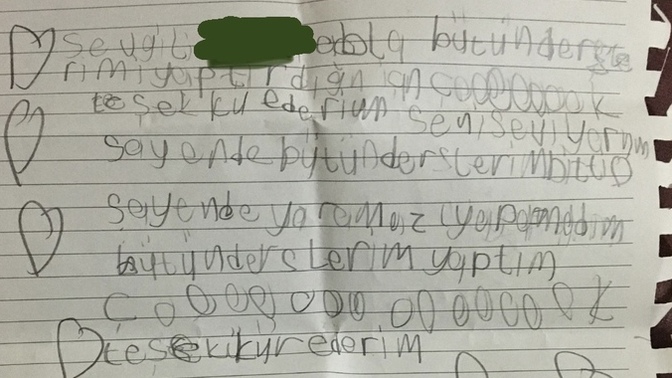 sevgili abla bütünderste
rimi yaptırdığın için çoooooook
teşekkü ederium seni seviyorum
sayende bütünderslerimbitti
sayende yaramaz yapamadım
bütünderslerim yaptım
çooooooooooooook
teşekikürederim